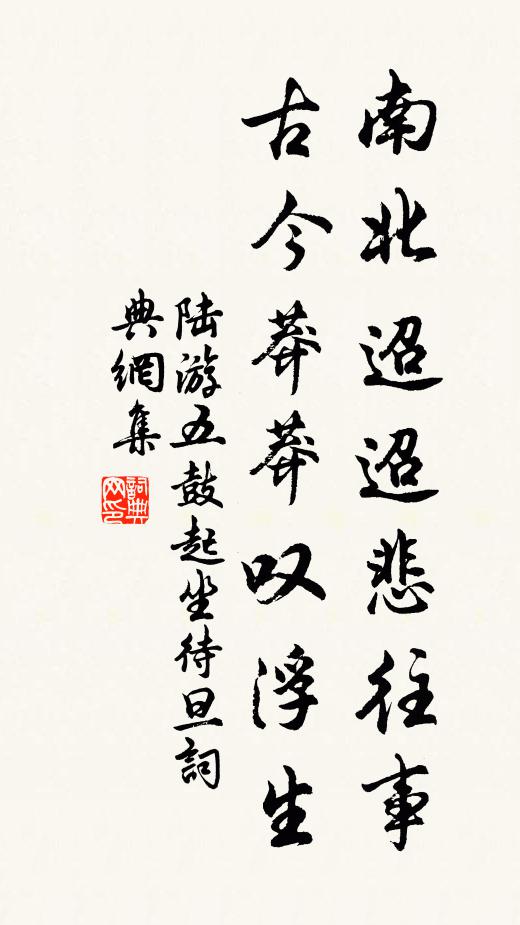 南北迢迢悲往事
古今莽莽叹浮生
陆游五鼓起坐待旦詞
典網集
詞典
网印